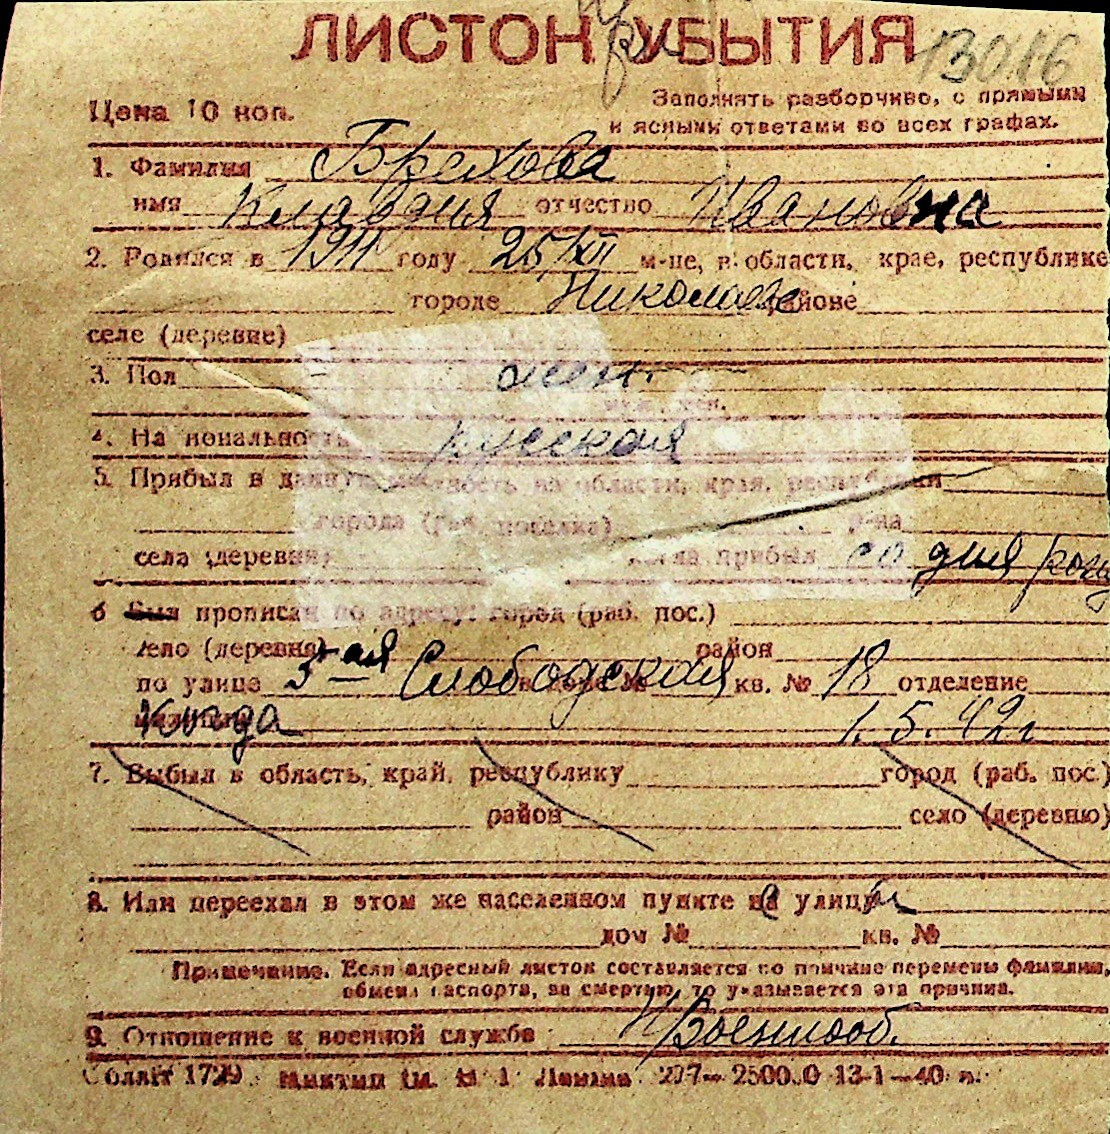 ЛИСТОК УБЫТИЯ
13016
Цена 10 коп.
Заполнять разборчиво, с прямыми
и ясными ответами во всех графах.
1. Фамилия Брехова
имя Клавдия отчество Ивановна
2. Родился в 1911 году 25/XII м-це, в области, крае, республике
городе Николаев районе
селе (деревне)
3. Пол жен.
4. Национальность русская
5. Прибыл в данную местность из области, края, республики
города (раб. поселка) р-на
села (деревни) когда прибыл со дня рожд
6 Был прописан по адресу: город (раб. пос.)
село (деревня) район
по улице 3-ая Слободская кв. № 18 отделение
Когда 1.5.42г
7. Выбыл в область, край, республику город (раб. пос.)
район село (деревню)
8. Или переехал в этом же населенном пункте на улицу
дом № кв. №
Примечание. Если адресный листок составляется по причине перемены фамилии,
обмена паспорта, за смертью, то указывается эта причина.
9. Отношение к военной службе Н/Военнооб.
Облліт 1729 Леніна 2500.0 13-1-40 р.